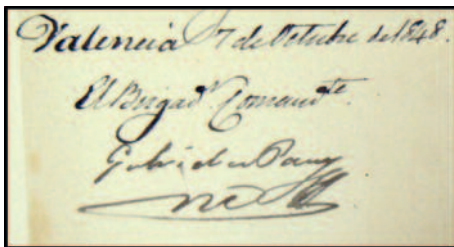 Valencia 7 de Octubre de 1848.
El Brigad.r Comand.te
Gabriel de